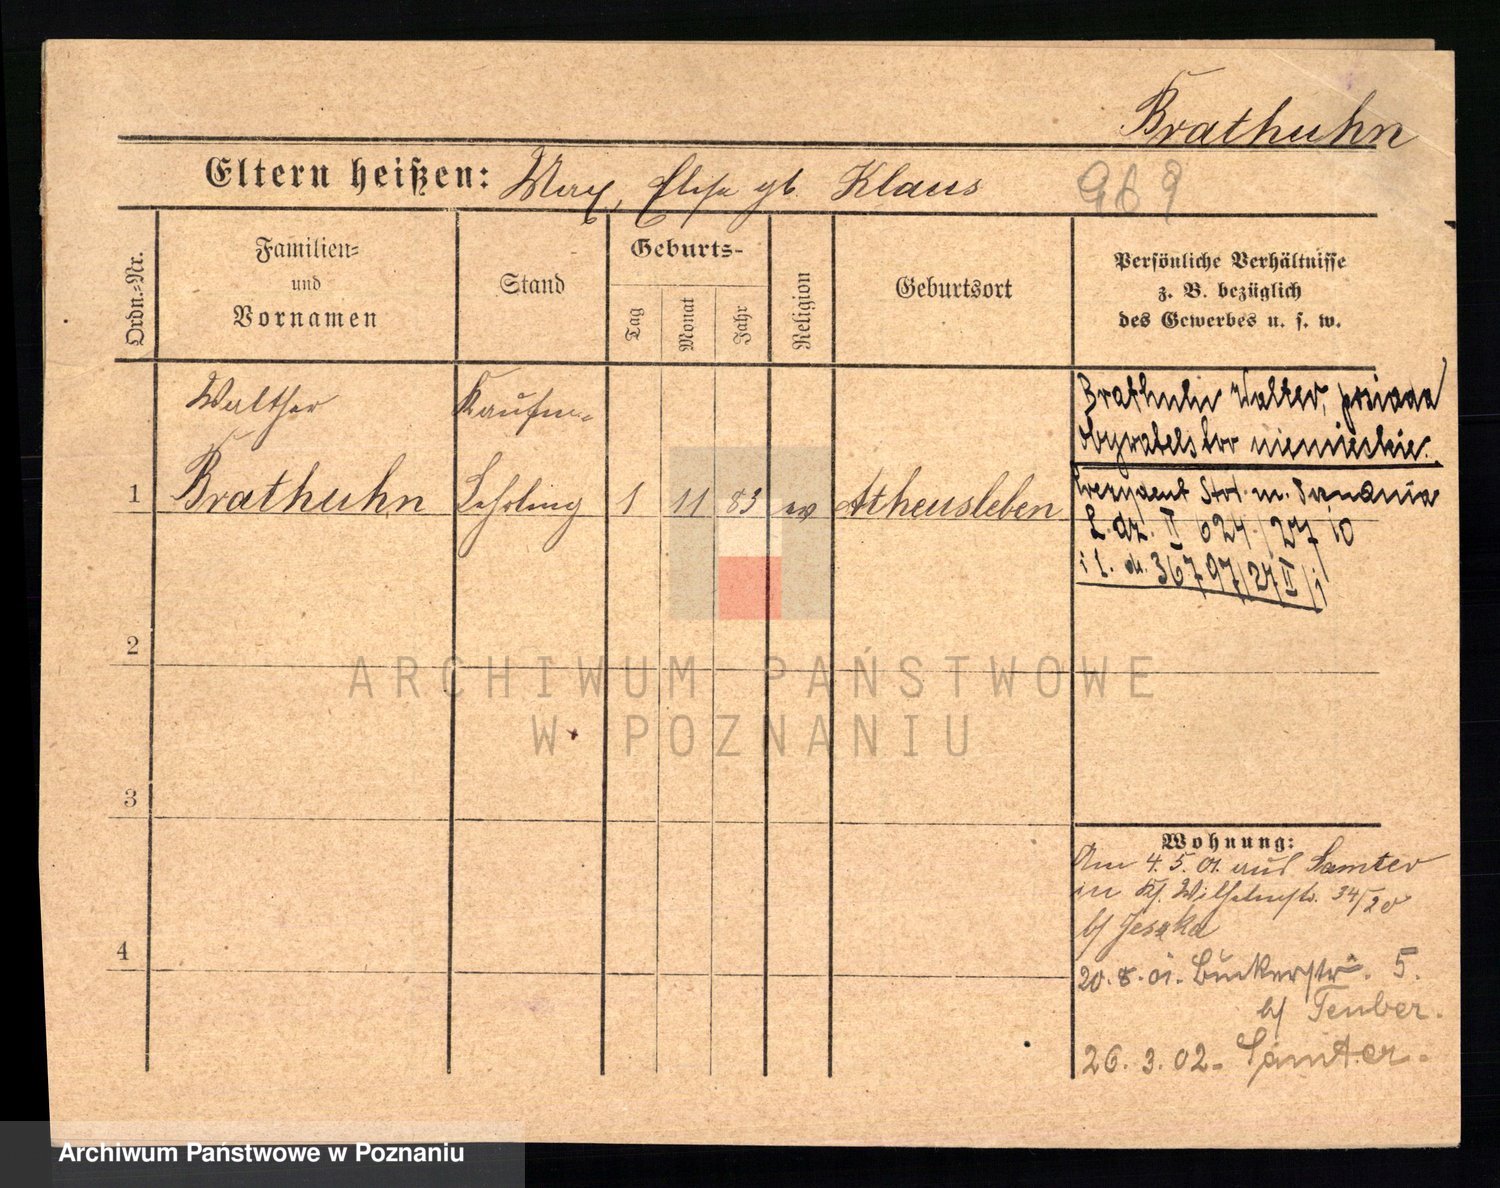 Brathuhn
Eltern heißen: Max, Else gb. Klaus
Ordn.-Nr.
Familien-
und
Vornamen
Stand
Geburts-
Tag
Monat
Jahr
Religion
Geburtsort
Persönliche Verhältnisse
z. B. bezüglich
des Gewerbes u. s. w.
1
Walther
Brathuhn
Kaufm.-
Lehrling
1
11
83
ev
Athensleben
Brathuhn Walter, posiada
obywatelstwo niemieckie.
Prezydent Stoł. m. Poznania
L. dz. II 624/27
i l. dz. 36797/27 II/i
2
3
4
Wohnung:
Am 4.5.01. aus Samter
in Wilhelmstr. 34/20
b/ Jeszka
20.8.01. Bückerstr. 5.
b/ Teuber.
26.3.02 - Samter.
ARCHIWUM PAŃSTWOWE
W POZNANIU
Archiwum Państwowe w Poznaniu